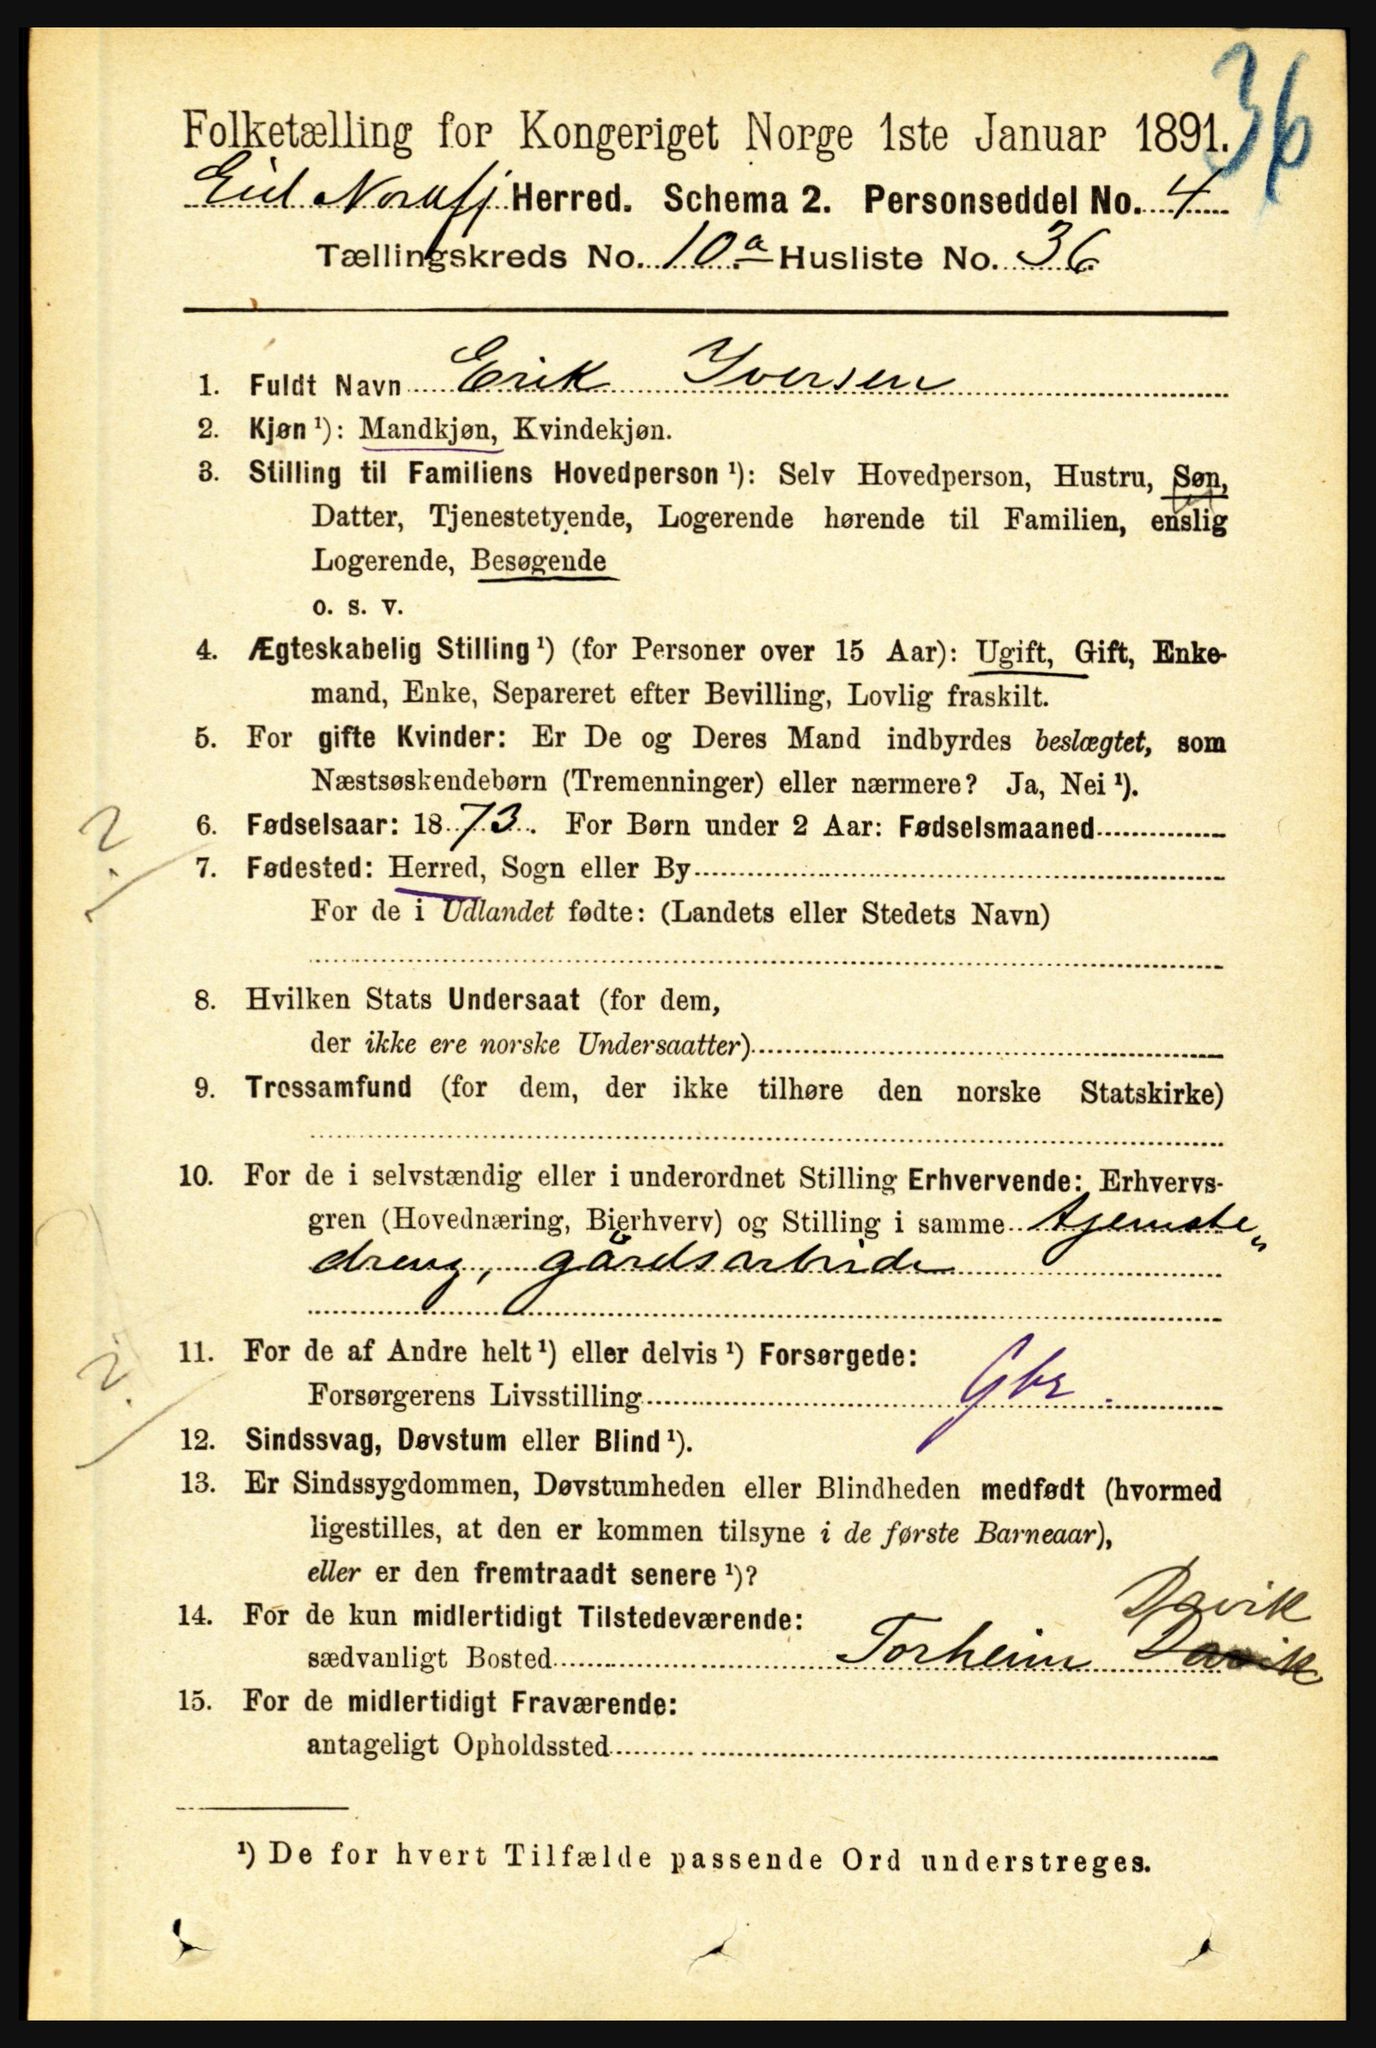 36
Folketælling for Kongeriget Norge 1ste Januar 1891.
Eid Nordfj Herred. Schema 2. Personseddel No. 4
Tællingskreds No. 10 a Husliste No. 36
1. Fuldt Navn Erik Iversen
2. Kjøn ¹): Mandkjøn, Kvindekjøn.
3. Stilling til Familiens Hovedperson ¹): Selv Hovedperson, Hustru, Søn,
Datter, Tjenestetyende, Logerende hørende til Familien, enslig
Logerende, Besøgende
o. s. v.
4. Ægteskabelig Stilling ¹) (for Personer over 15 Aar): Ugift, Gift, Enke-
mand, Enke, Separeret efter Bevilling, Lovlig fraskilt.
5. For gifte Kvinder: Er De og Deres Mand indbyrdes beslægtet, som
Næstsøskendebørn (Tremenninger) eller nærmere? Ja, Nei ¹).
6. Fødselsaar: 1873. For Børn under 2 Aar: Fødselsmaaned
7. Fødested: Herred, Sogn eller By
For de i Udlandet fødte: (Landets eller Stedets Navn)
8. Hvilken Stats Undersaat (for dem,
der ikke ere norske Undersaatter)
9. Trossamfund (for dem, der ikke tilhøre den norske Statskirke)
10. For de i selvstændig eller i underordnet Stilling Erhvervende: Erhvervs-
gren (Hovednæring, Bierhverv) og Stilling i samme tjeneste-
dreng, gårdsarbeide
11. For de af Andre helt ¹) eller delvis ¹) Forsørgede:
Forsørgerens Livsstilling Gbr.
12. Sindssvag, Døvstum eller Blind ¹).
13. Er Sindssygdommen, Døvstumheden eller Blindheden medfødt (hvormed
ligestilles, at den er kommen tilsyne i de første Barneaar),
eller er den fremtraadt senere ¹)?
Davik
14. For de kun midlertidigt Tilstedeværende:
sædvanligt Bosted Torheim Davik
15. For de midlertidigt Fraværende:
antageligt Opholdssted
¹) De for hvert Tilfælde passende Ord understreges.